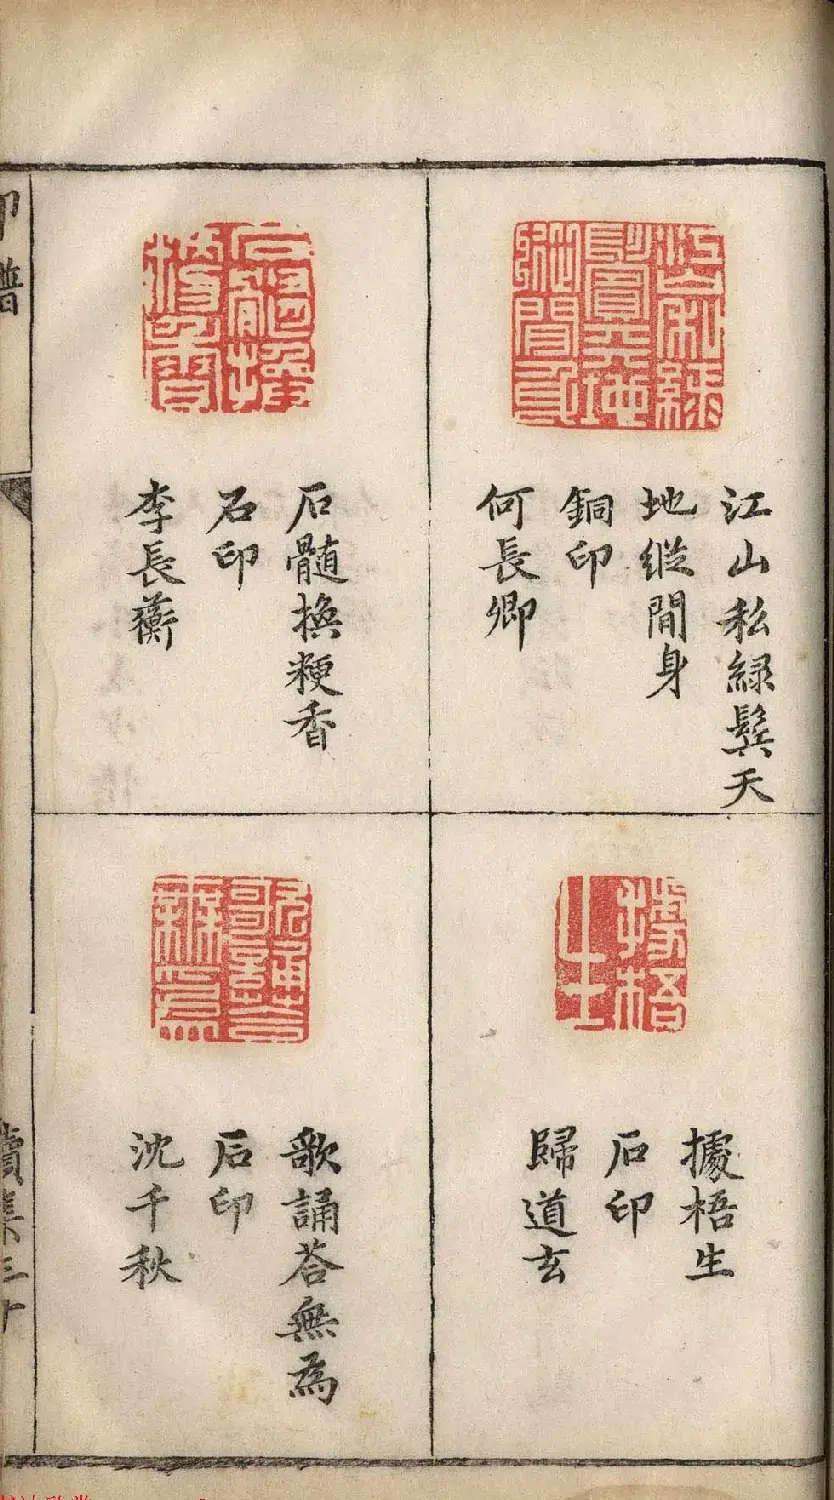 江山私綠鬂天
地縱閒身
銅印
何長卿
石髄換粳香
石印
李長蘅
據梧生
石印
歸道玄
歌誦荅無為
石印
沈千秋
印譜
續集三十